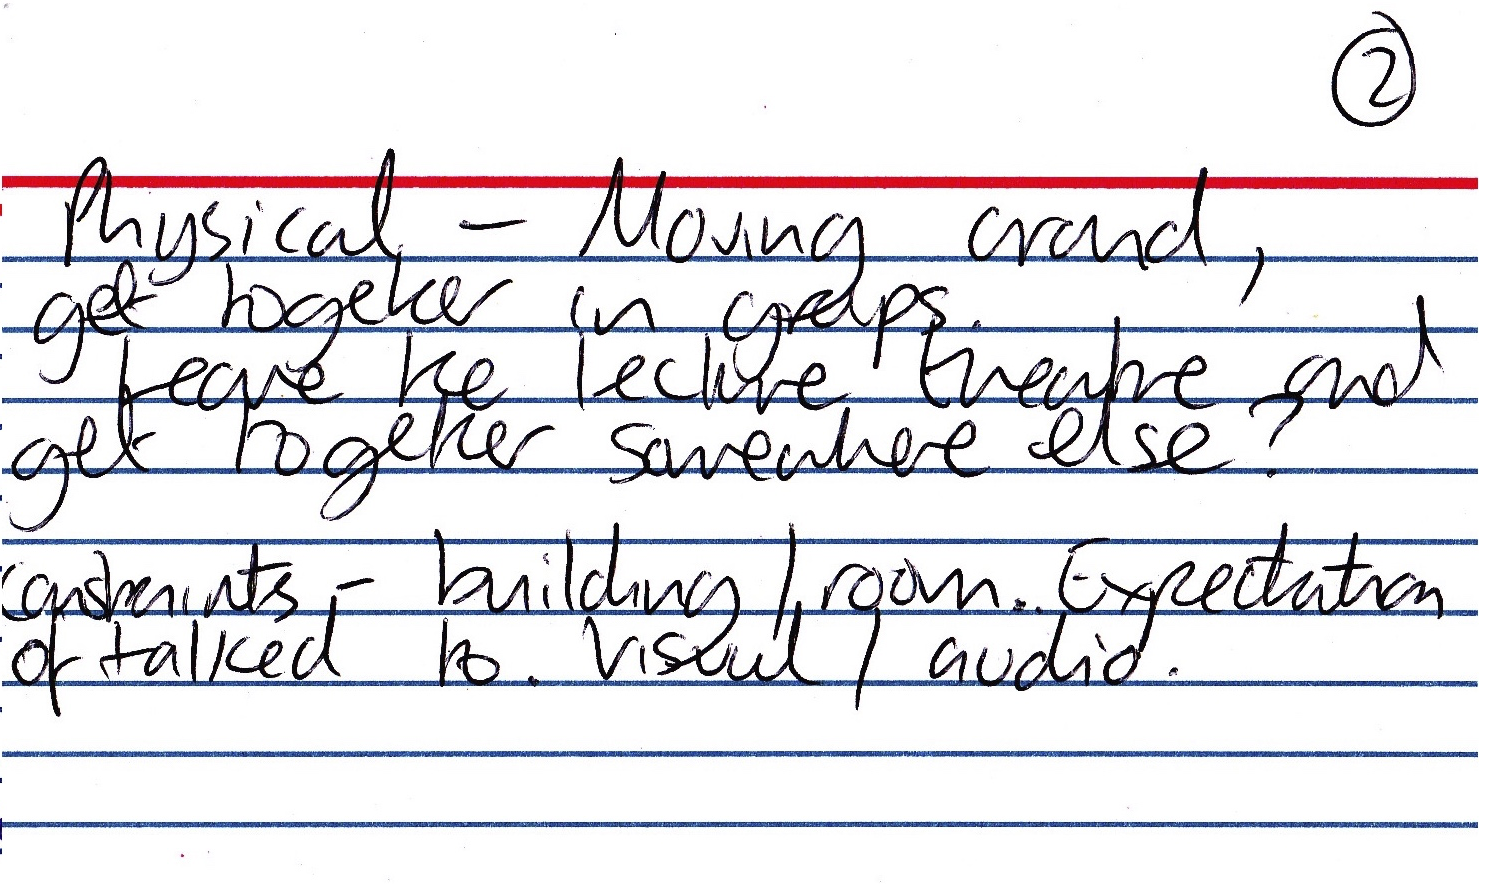 2
Physical – Moving around,
get together in groups.
Leave the lecture theatre and
get together somewhere else?
Constraints – building / room.. Expectation
of talked to. Visual / audio.